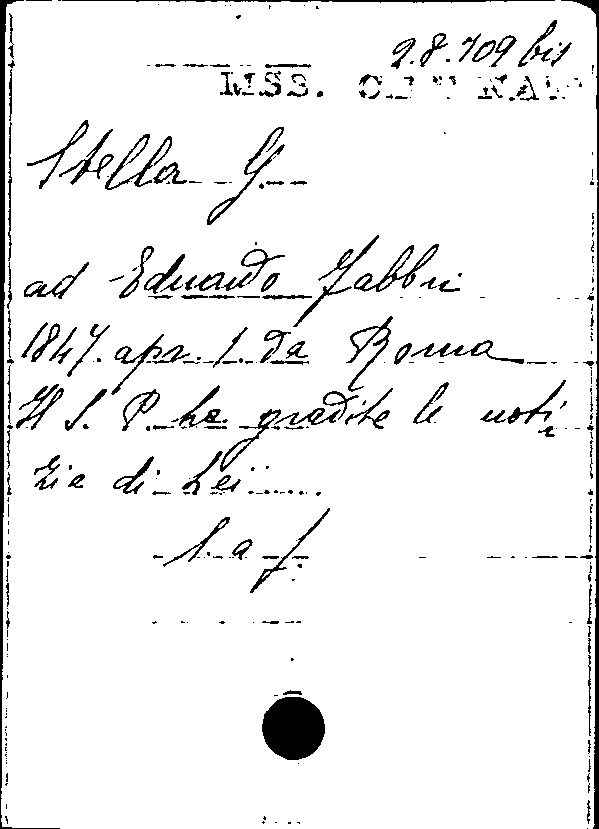 9.8.709 bis
MSS.
Stella G.
ad Eduardo Fabbri
1847. apr. 1. da Roma
Il S. P. ha gradite le noti
zie di Lei......
l. a f.